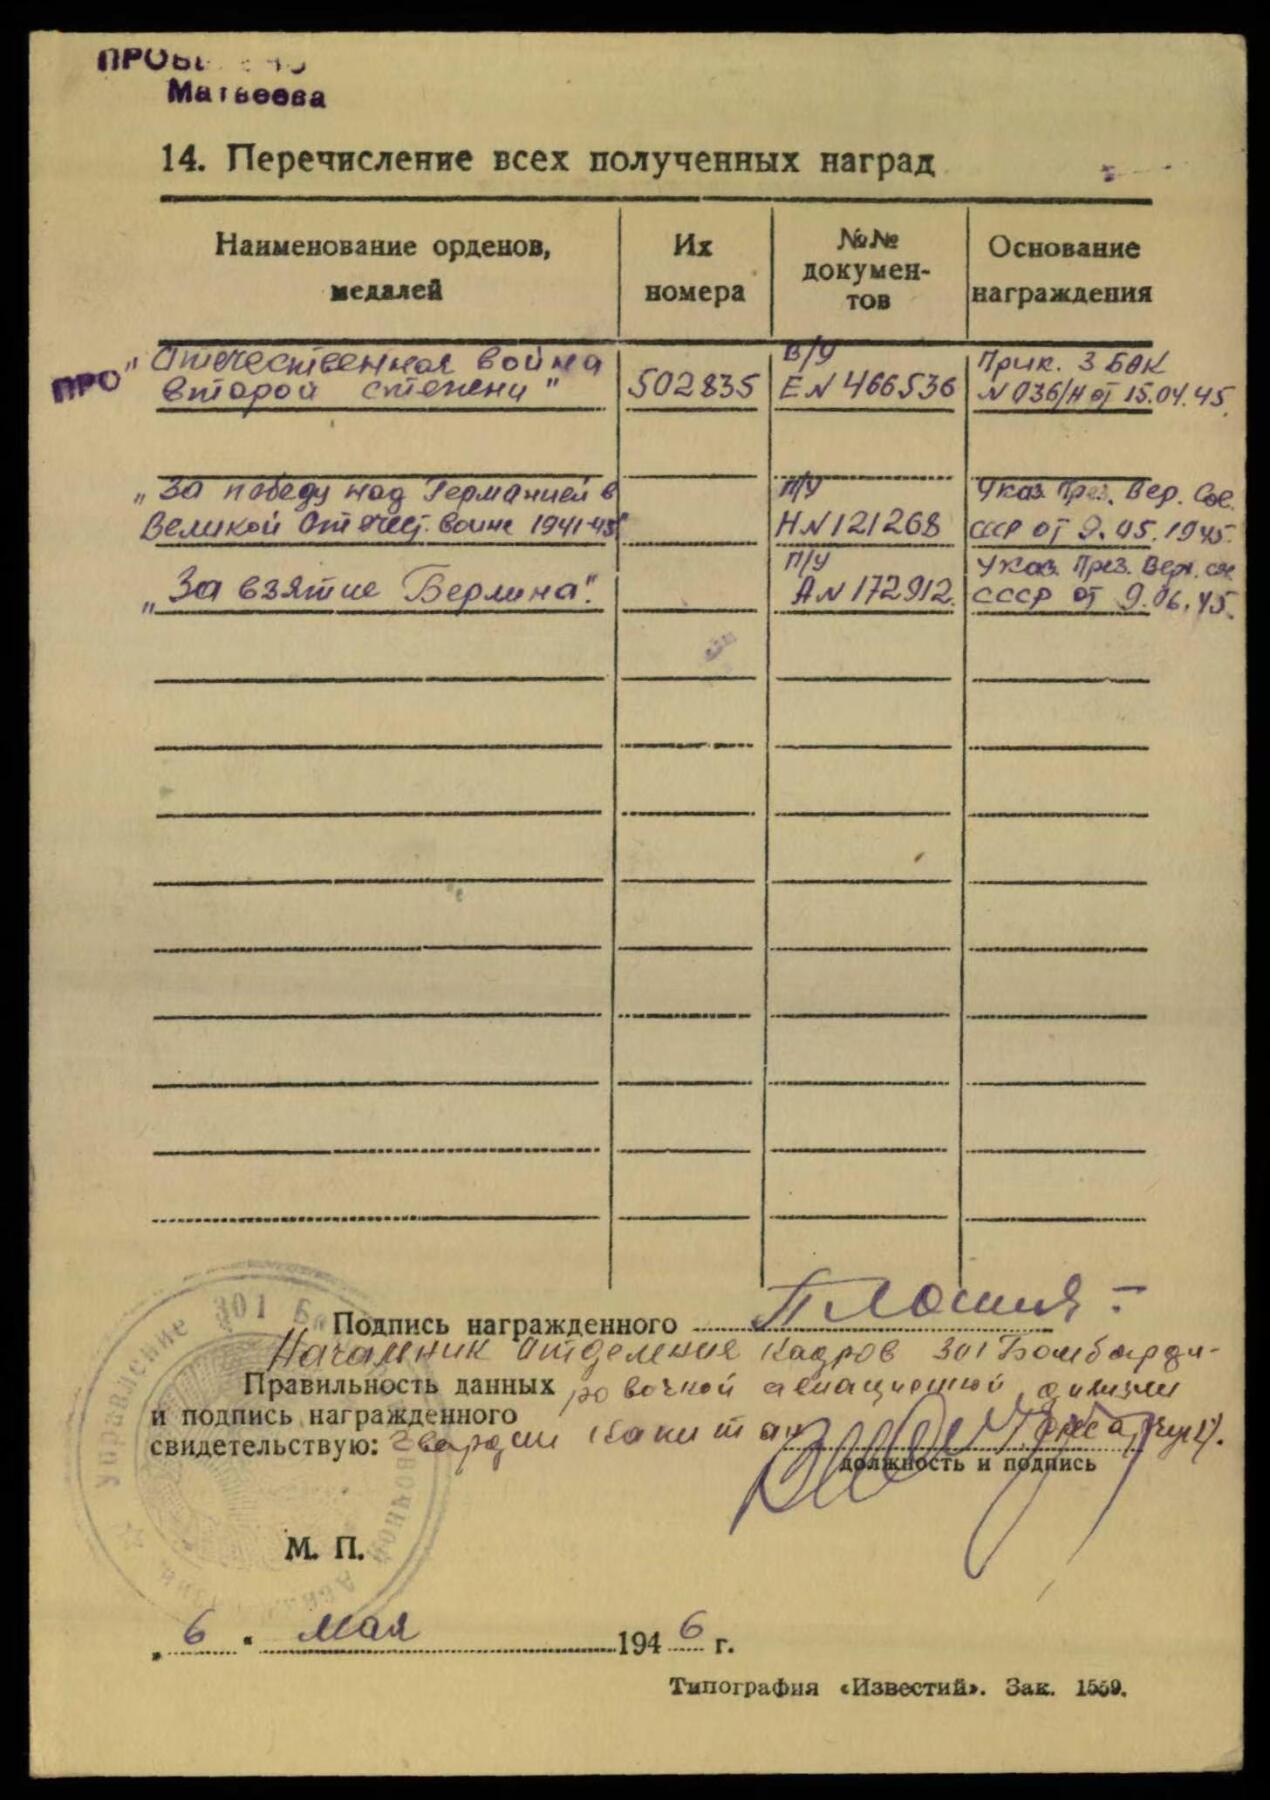 Матвеева
14. Перечисление всех полученных наград
Наименование орденов,
медалей
Их
номера
№№
докумен-
тов
Основание
награждения
ПРО
„Отечественная война
второй степени"
502835
В/У
Е N 466536
Прик. 3 БАК
N 036/Н от 15.04.45.
„За победу над Германией в
Великой Отечест. войне 1941-45"
П/У
Н N 121268
Указ През. Вер. Сов.
СССР от 9.05.1945.
„За взятие Берлина".
П/У
А N 172912.
Указ През. Верх. Сов.
СССР от 9.06.45.
Управление 301
Подпись награжденного
Начальник отделения кадров 301 Бомбарди-
Правильность данных ровочной авиационной дивизии
и подпись награжденного
свидетельствую: гвардии капитан
должность и подпись
М. П.
„6" мая 1946 г.
Типография «Известий». Зак. 1559.